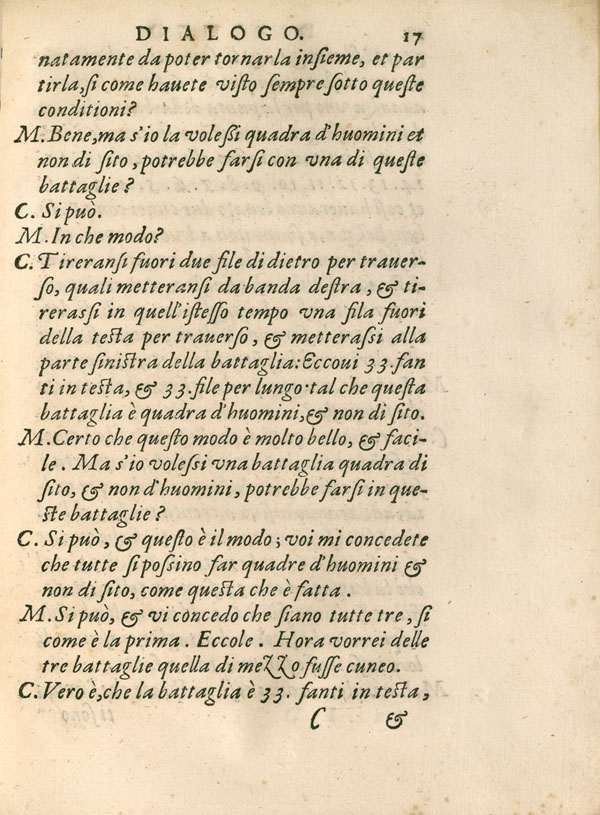 DIALOGO. 17
natamente da poter tornarla inſieme, et par
tirla, ſi come hauete viſto ſempre ſotto queſte
conditioni?
M. Bene, ma s'io la voleſſi quadra d'huomini et
non di ſito, potrebbe farſi con vna di queſte
battaglie?
C. Si può.
M. In che modo?
C. Tireranſi fuori due file di dietro per trauer-
ſo, quali metteranſi da banda deſtra, & ti-
reraſſi in quell'iſteſſo tempo vna fila fuori
della teſta per trauerſo, & metteraſſi alla
parte ſiniſtra della battaglia: Eccoui 33. fan
ti in teſta, & 33. file per lungo. tal che queſta
battaglia è quadra d'huomini, & non di ſito.
M. Certo che queſto modo è molto bello, & faci-
le. Ma s'io voleſſi vna battaglia quadra di
ſito, & non d'huomini, potrebbe farſi in que-
ſte battaglie?
C. Si può, & queſto è il modo; voi mi concedete
che tutte ſi poſſino far quadre d'huomini &
non di ſito, come queſta che è fatta.
M. Si può, & vi concedo che ſiano tutte tre, ſi
come è la prima. Eccole. Hora vorrei delle
tre battaglie quella di mezzo fuſſe cuneo.
C. Vero è, che la battaglia è 33. fanti in teſta,
C &